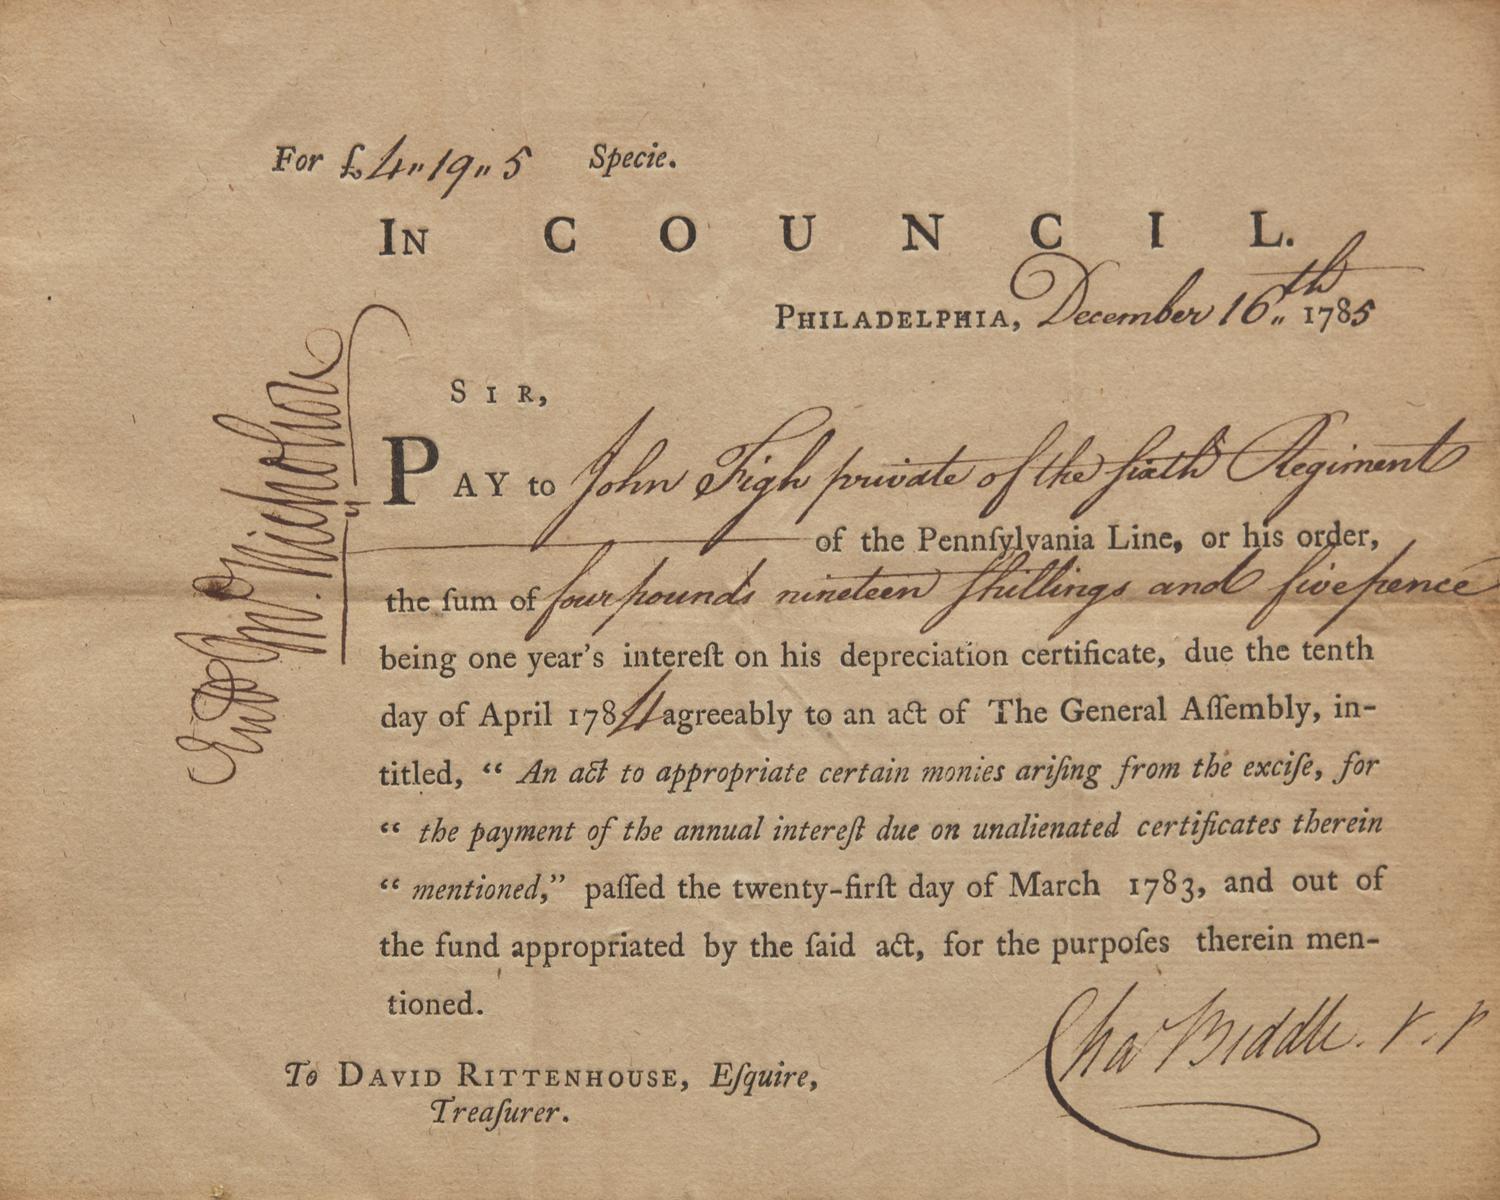 For £4„19„5 Specie.
IN COUNCIL.
PHILADELPHIA, December 16„th 1785
SIR,
PAY to John Figh private of the sixth Regiment
of the Pennſylvania Line, or his order,
the ſum of four pounds nineteen ſhillings and five pence
being one year's intereſt on his depreciation certificate, due the tenth
day of April 1784 agreeably to an act of The General Aſſembly, in-
titled, “ An act to appropriate certain monies ariſing from the exciſe, for
“ the payment of the annual intereſt due on unalienated certificates therein
“ mentioned,” paſſed the twenty-firſt day of March 1783, and out of
the fund appropriated by the ſaid act, for the purpoſes therein men-
tioned.
Cha Biddle. V. P
To DAVID RITTENHOUSE, Eſquire,
Treaſurer.
Entd Jno. Nicholson